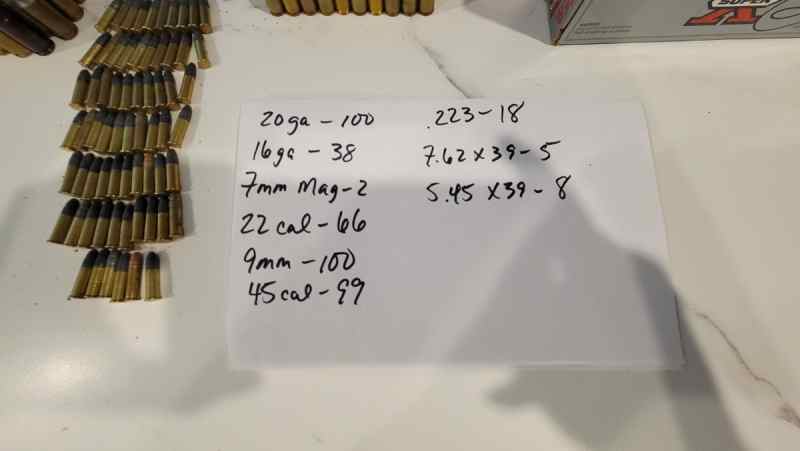 SUPER
X
20ga - 100
16ga - 38
7mm Mag - 2
22 cal - 66
9mm - 100
45 cal - 99
.223 - 18
7.62 x 39 - 5
5.45 x 39 - 8